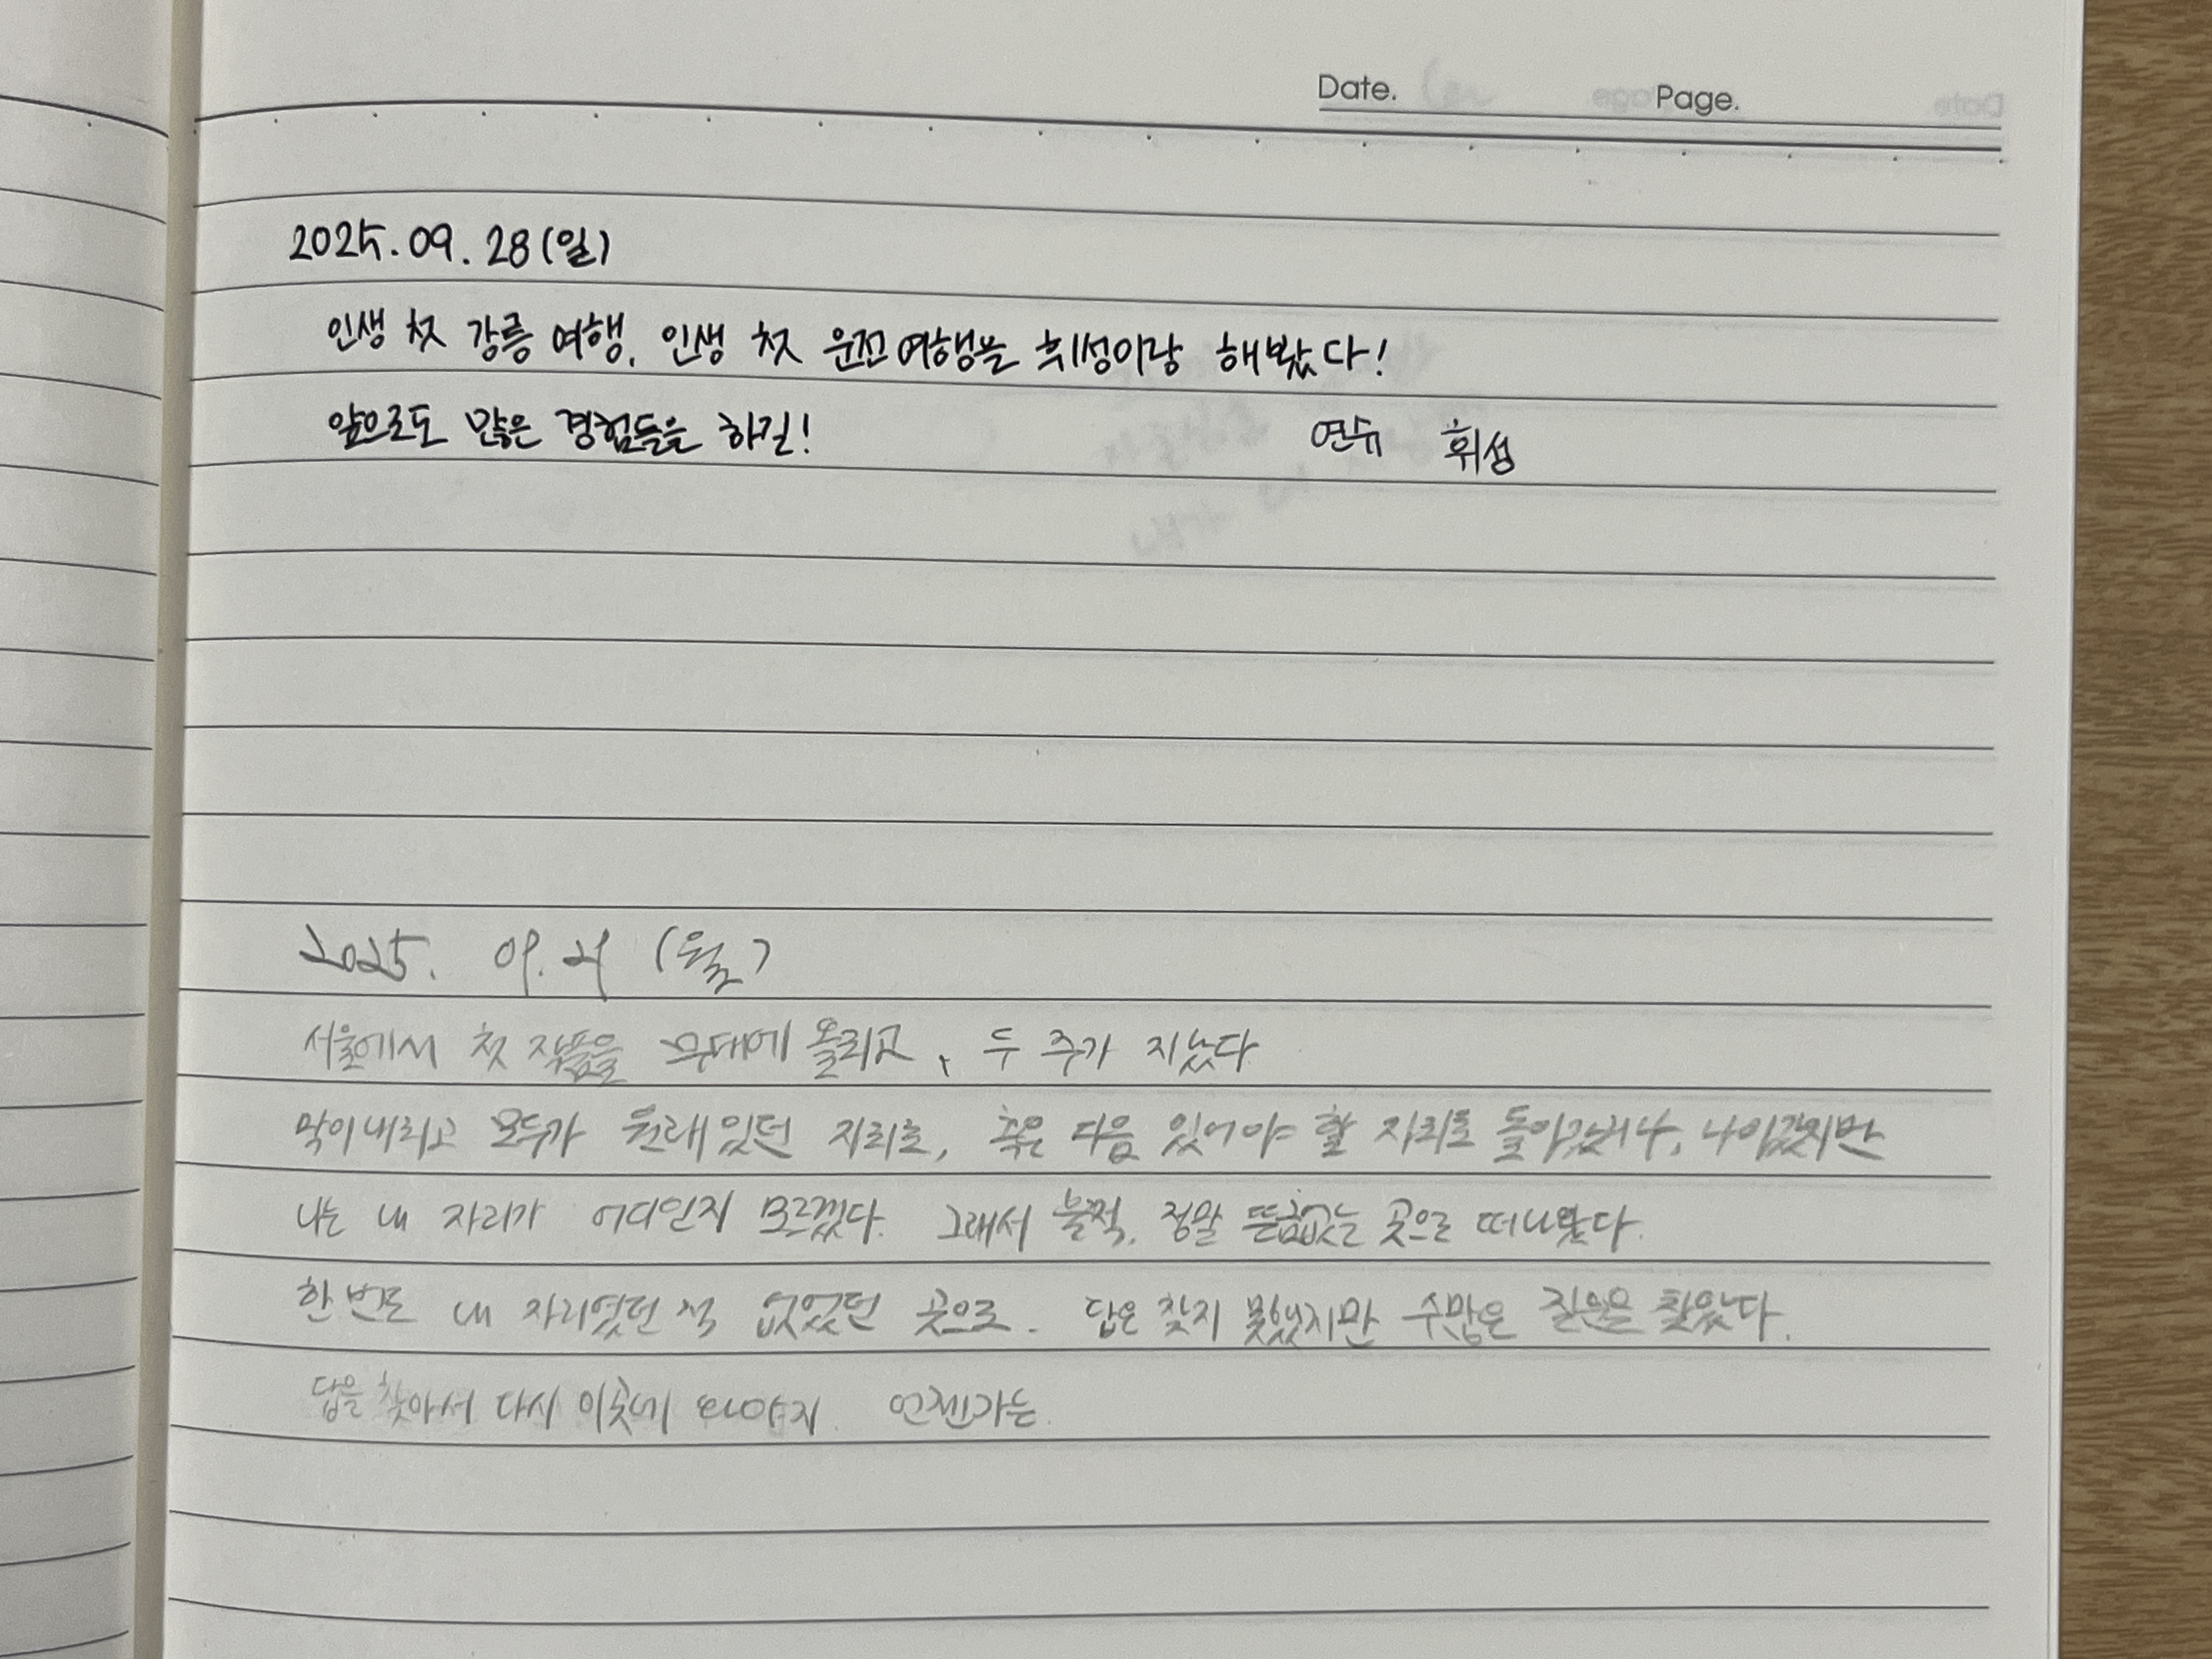 Date. Page.
2025.09.28(일)
인생 첫 강릉 여행, 인생 첫 운전여행을 휘성이랑 해봤다!
앞으로도 많은 경험들을 하길!
연수 휘성
2025. 09. 29 (월)
서울에서 첫 작품을 무대에 올리고, 두 주가 지났다
막이 내리고 모두가 원래 있던 자리로, 혹은 다음 있어야 할 자리로 돌아갔지만
나는 내 자리가 어디인지 모르겠다. 그래서 불쑥, 정말 뜬금없는 곳으로 떠나왔다.
한 번도 내 자리였던 적 없었던 곳으로. 답은 찾지 못했지만 수많은 질문을 찾았다.
답을 찾아서 다시 이곳에 와야지. 언젠가는.